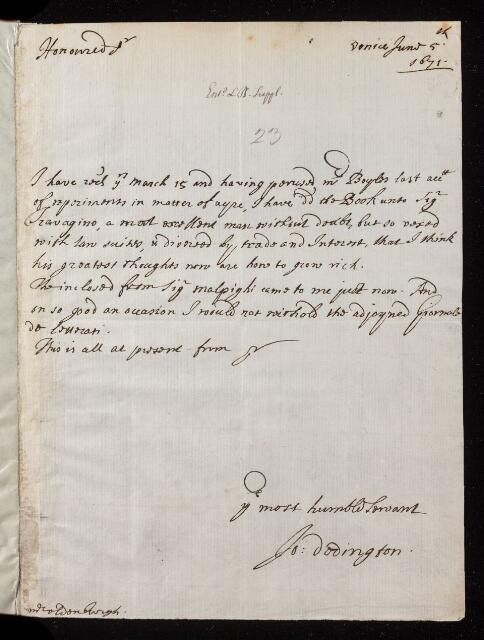 Honoured Sr
Venice June 5.
1671.
Entd L.B. Suppl.
23
I have recd yr March 15 and having perused Mr Boyles last acct
of experiments in matter of ayre, I have dd the Book unto Sigr
Travagino, a most excellent man without doubt, but so vexed
with law suites, & diverted by trade and Interest, that I think
his greatest thoughts now are how to grow rich.
The inclosed from Sigr Malpighi came to me just now. And
on so good an occasion I would not withold the adjoyned Giornale
de letterati.
This is all at present from Sr
yr most humble Servant
Jo: Dodington.
Mr oldenburgh.